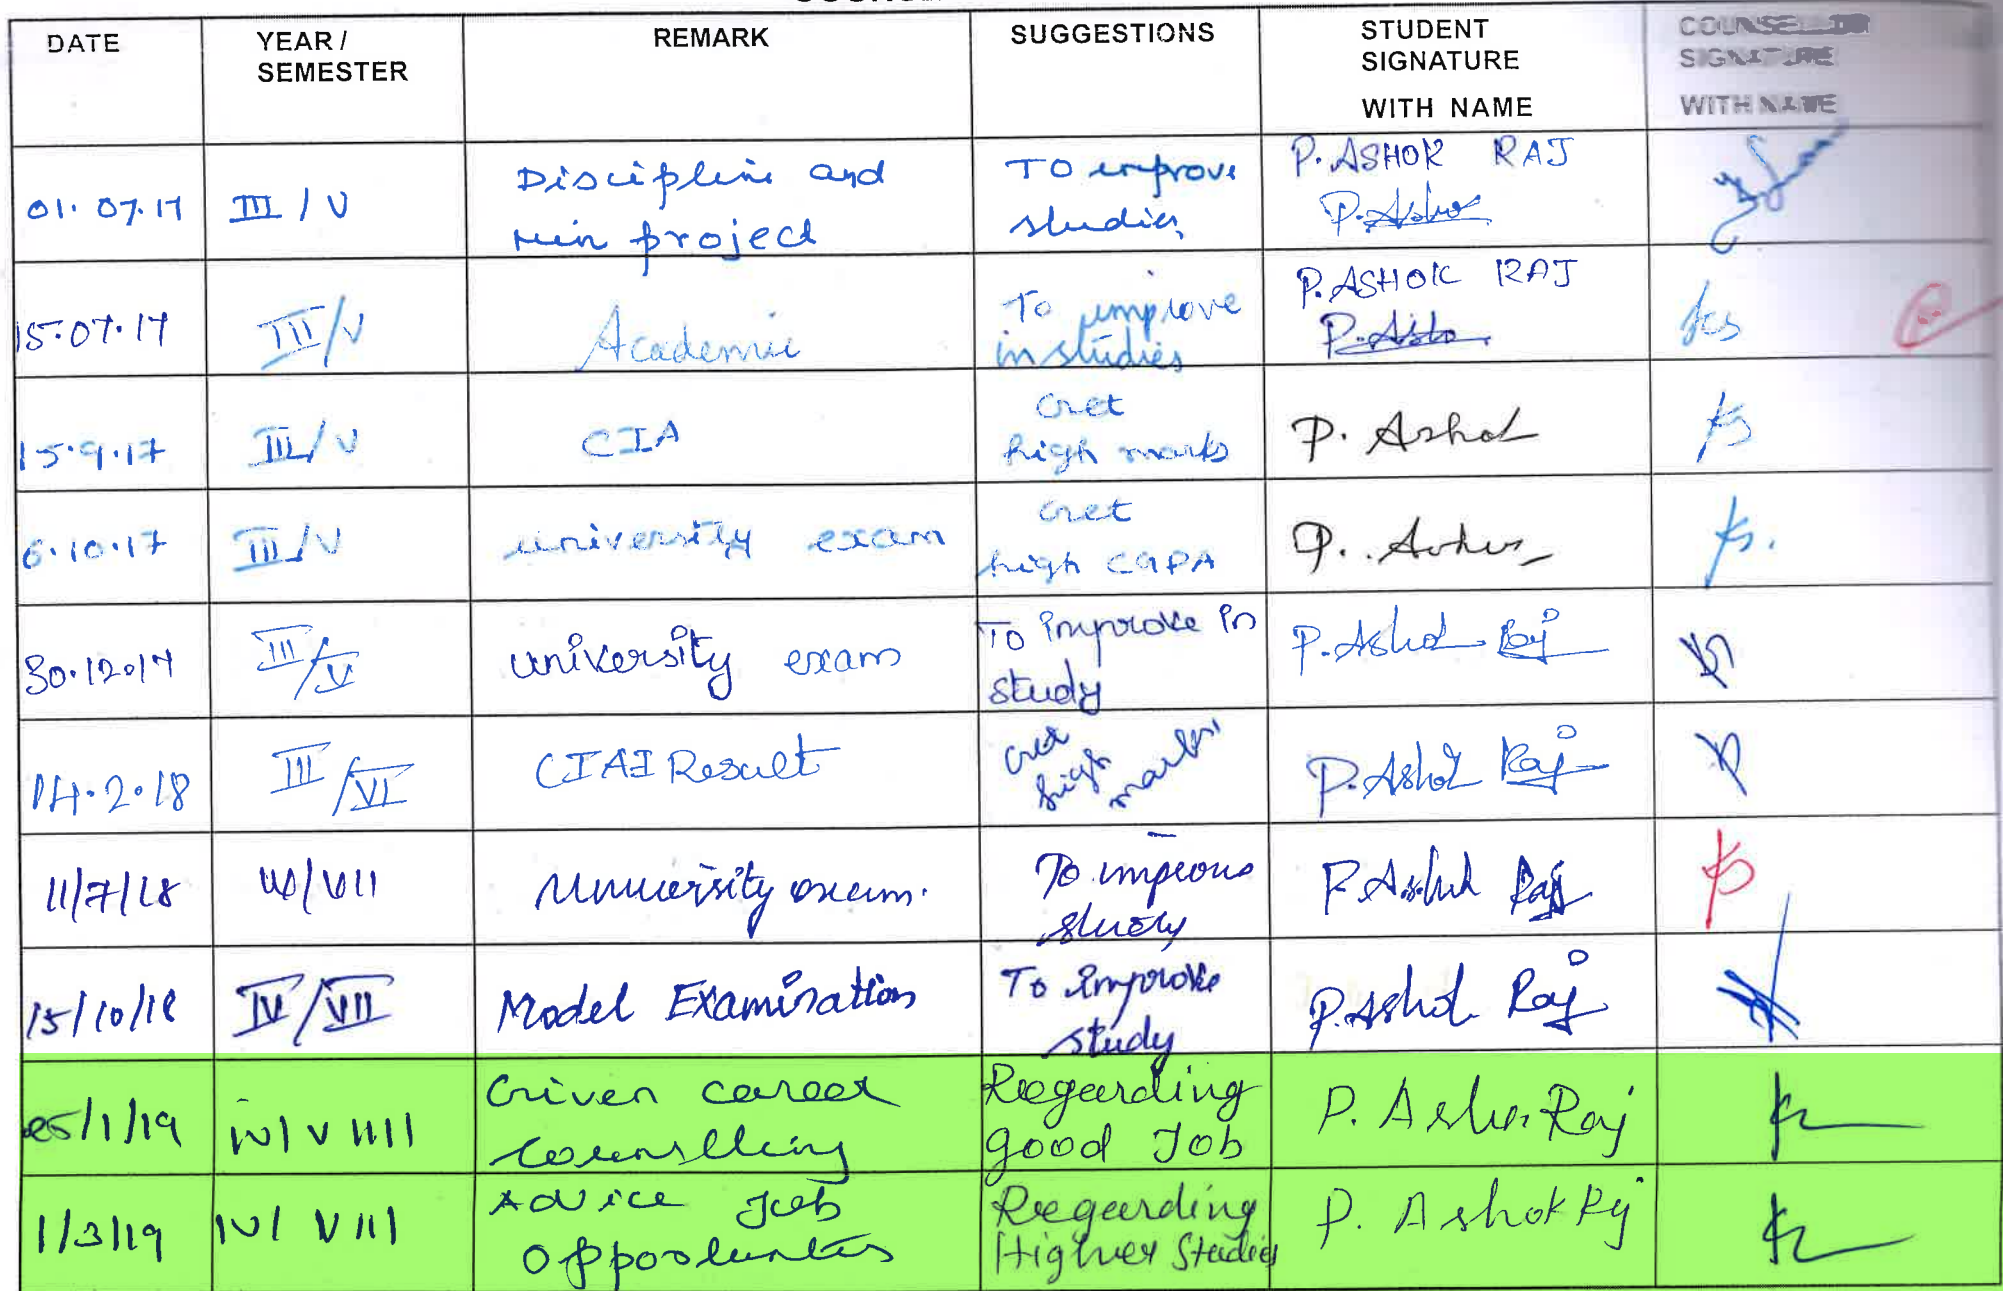 DATE
YEAR / SEMESTER
REMARK
SUGGESTIONS
STUDENT SIGNATURE WITH NAME
COUNSELLOR SIGNATURE WITH NAME
01.07.17
III / V
Discipline and
min project
To improve
studies
P. ASHOK RAJ
P. Asho
15.07.17
III/V
Academic
To improve
in studies
P. ASHOK RAJ
P. Asho
15.9.17
III/V
CIA
Get
high marks
P. Ashok
6.10.17
III/V
university exam
Get
high CGPA
P.
30.12.17
III/V
university exam
To improve in
study
P. Ashok Raj
14.2.18
III/VI
CIAI Result
Get
high
marks
P. Ashok Raj
11/7/18
IV/VII
University exam.
To improve
study
P. Ashok Raj
15/10/18
IV/VII
Model Examination
To improve
study
P. Ashok Raj
25/1/19
IV/VIII
Given career
counselling
Regarding
good Job
P. Ashok Raj
1/3/19
IV/VIII
Advice Job
opportunities
Regarding
Higher Studies
P. Ashok Raj